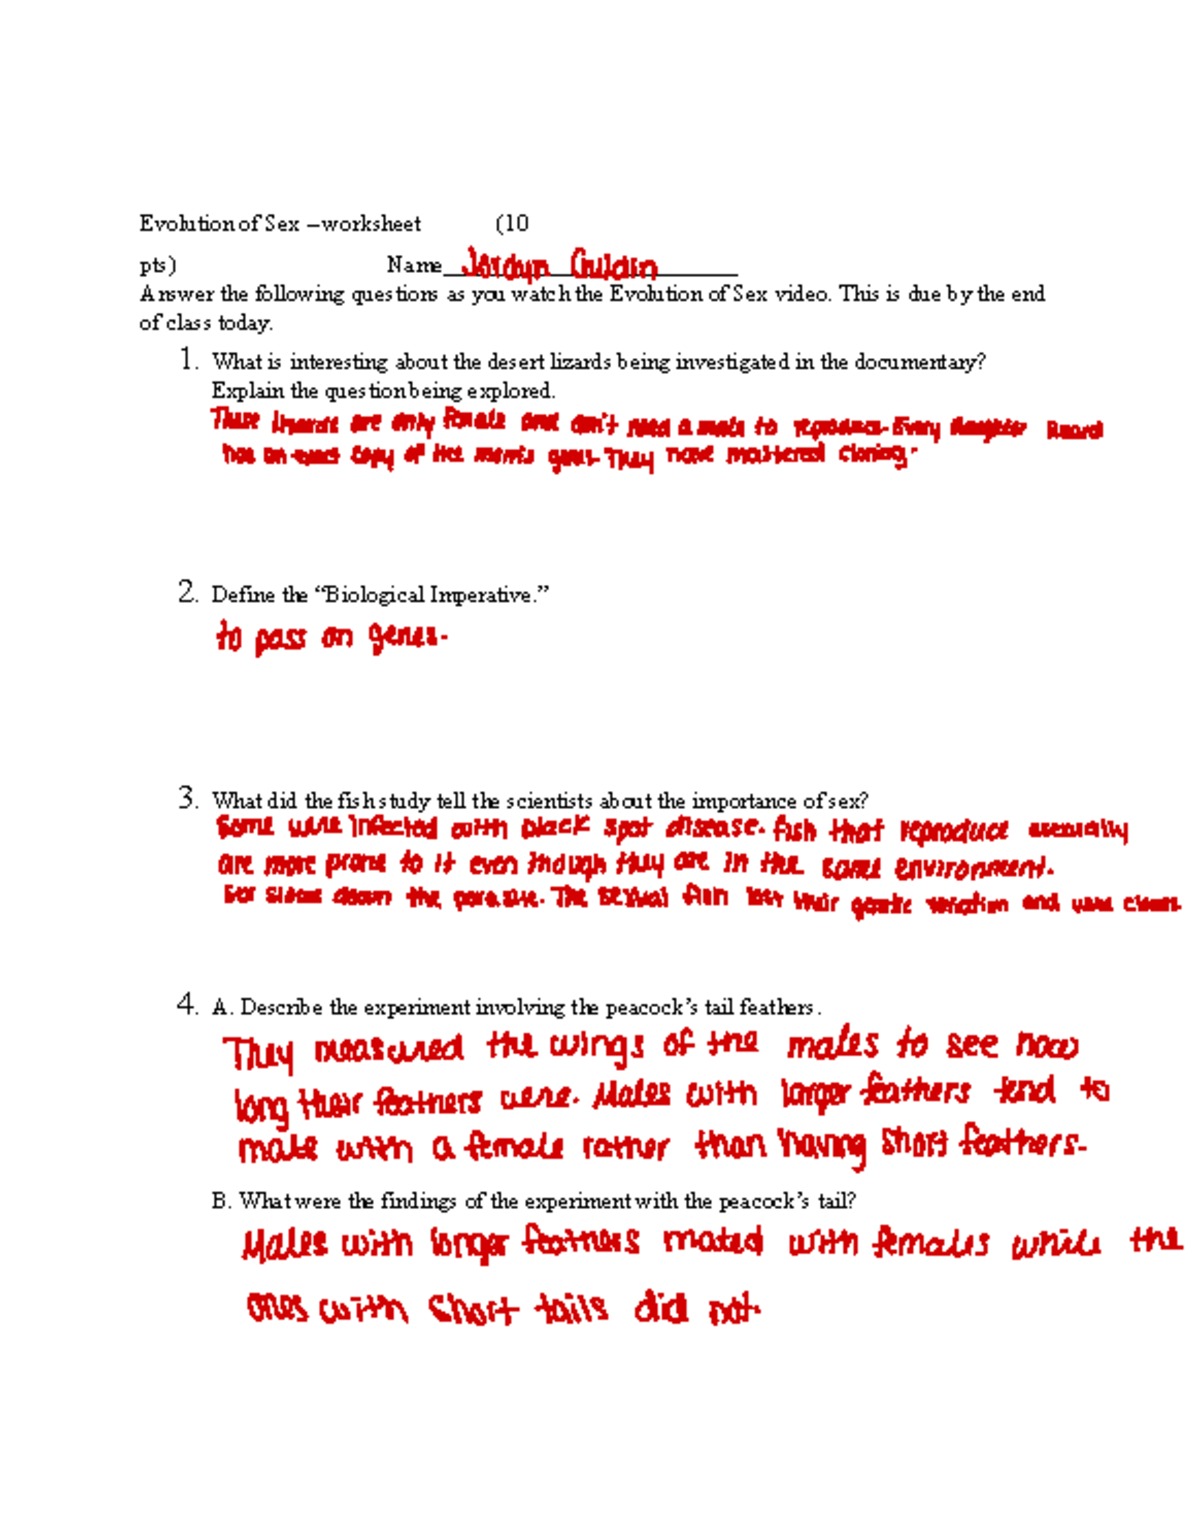 Evolution of Sex –worksheet (10
pts) Name Jordyn Guldin
Answer the following questions as you watch the Evolution of Sex video. This is due by the end
of class today.
1. What is interesting about the desert lizards being investigated in the documentary?
Explain the question being explored.
These lizards are only female and don't need a male to reproduce. Every daughter lizard
has an exact copy of her mom's genes. They have mastered cloning.
2. Define the “Biological Imperative.”
to pass on genes.
3. What did the fish study tell the scientists about the importance of sex?
Some were infected with black spot disease. fish that reproduce asexually
are more prone to it even though they are in the same environment.
Sex slows down the parasite. The sexual fish lost their genetic variation and were clones.
4. A. Describe the experiment involving the peacock’s tail feathers.
They measured the wings of the males to see how
long their feathers were. Males with larger feathers tend to
mate with a female rather than having short feathers.
B. What were the findings of the experiment with the peacock’s tail?
Males with longer feathers mated with females while the
ones with short tails did not.